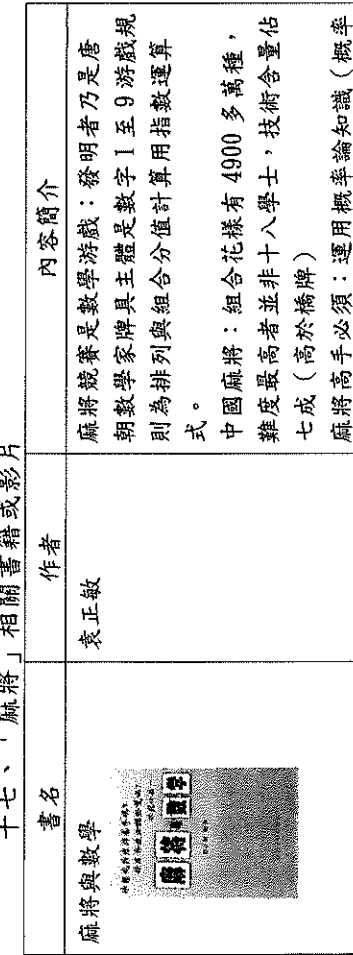 十七、「麻將」相關書籍或影片
書名
作者
內容簡介
麻將與數學
麻将与数学
袁正敏
麻將競賽是數學游戲：發明者乃是唐
朝數學家牌具主體是數字 1 至 9 游戲規
則為排列與組合分值計算用指數運算
式。
中國麻將：組合花樣有 4900 多萬種，
難度最高者並非十八學士，技術含量佔
七成（高於橋牌）
麻將高手必須：運用概率論知識（概率